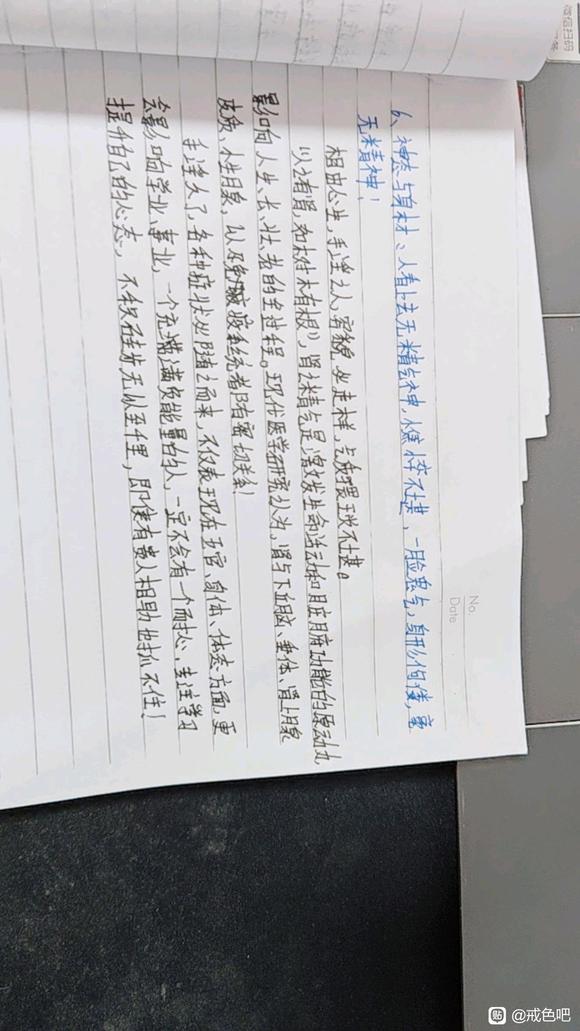 No.
Date
6、神态与身材、人看上去无精气神，憔悴不堪，一脸鬼气，身形佝偻，毫
无精神！
相由心生，手淫之人，容貌必走样，气质猥琐不堪。
以有肾，如树木有根），肾精气是激发生命活动和脏腑功能的原动力
影响人生、长、壮、老的全过程。现代医学研究认为，肾与下丘脑、垂体、肾上腺
皮质、性腺，以及免疫系统都有密切关系！
手淫久了，各种症状必随之而来，不仅表现在五官、身体、体态方面，更
会影响学业、事业，一个充满满负能量的人，一定不会有一个耐心，专注学习
提升自己的心态，不积硅步无以至千里，即使有贵人相助也抓不住！
微信扫码
贴 @戒色吧